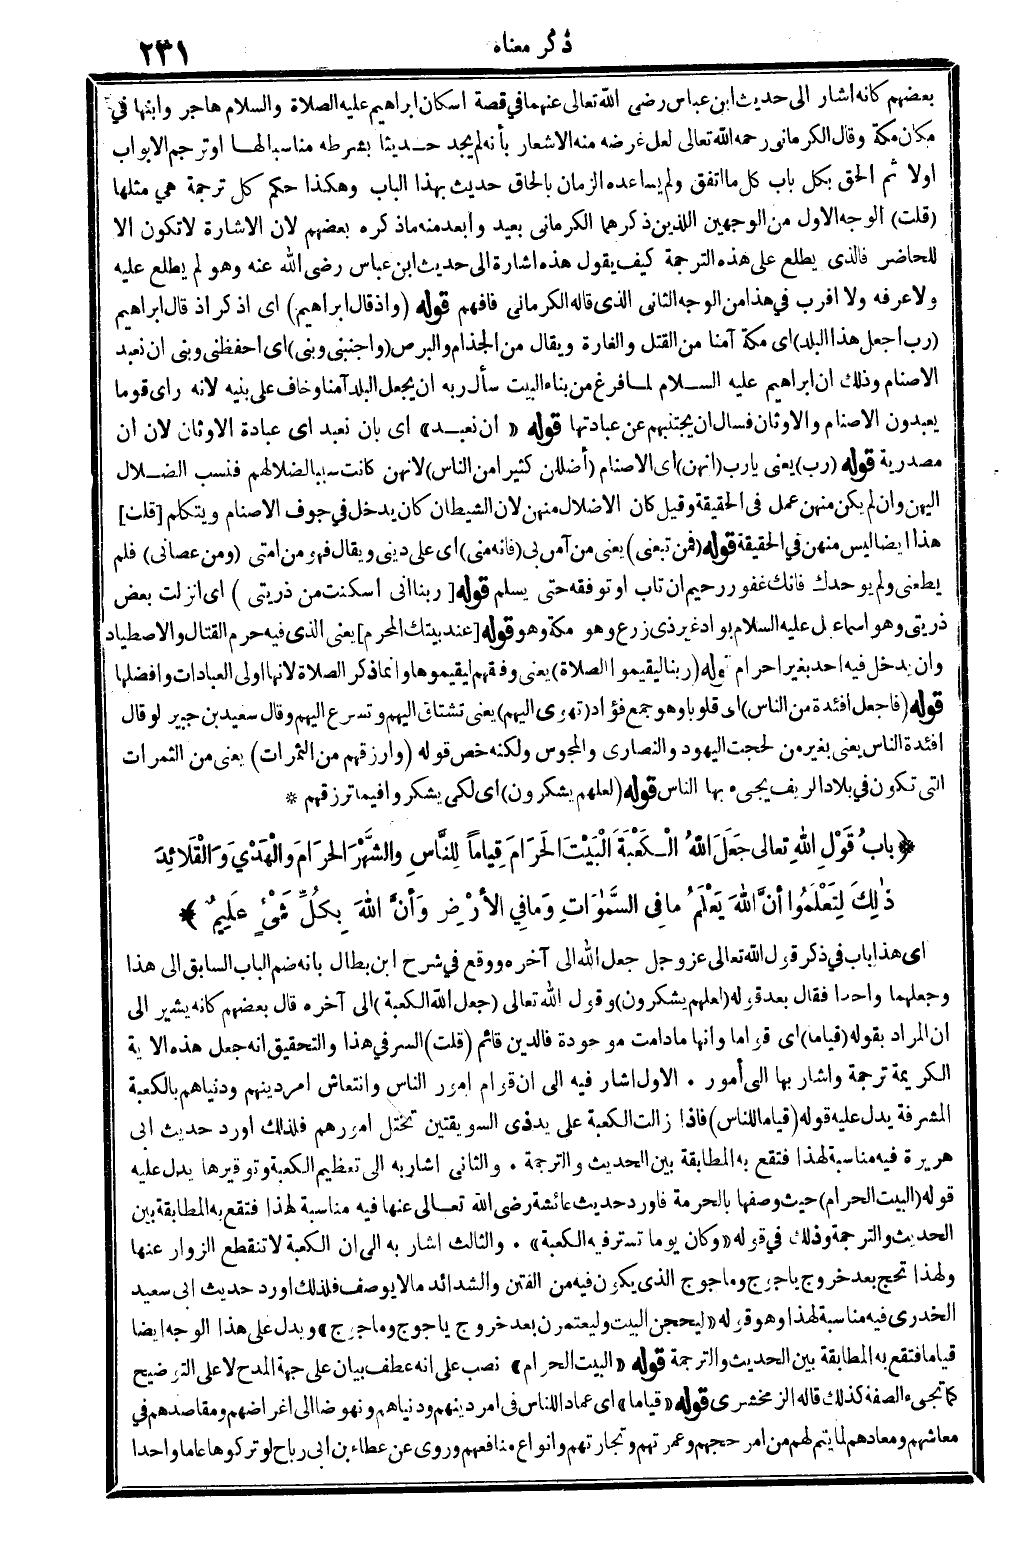 ذكر معناه ٢٣١
بعضهم كانه اشار الى حديث ابن عباس رضى الله تعالى عنهما في قصة اسكان ابراهيم عليه الصلاة والسلام هاجر وابنها في
مكان مكة وقال الكرمانى رحمه الله تعالى لعل غرضه منه الاشعار بأنه لم يجد حديثا بشرطه مناسبا لها او ترجم الابواب
اولا ثم الحق بكل باب كل ما اتفق ولم يساعده الزمان بالحاق حديث بهذا الباب وهكذا حكم كل ترجمة هي مثلها
(قلت) الوجه الاول من الوجهين اللذين ذكرهما الكرمانى بعيد وابعد منه ماذكره بعضهم لان الاشارة لاتكون الا
للحاضر فالذى يطلع على هذه الترجمة كيف يقول هذه اشارة الى حديث ابن عباس رضى الله عنه وهو لم يطلع عليه
ولا عرفه ولا اقرب في هذا من الوجه الثانى الذى قاله الكرمانى فافهم قوله (واذ قال ابراهيم) اى اذكر اذ قال ابراهيم
(رب اجعل هذا البلد) اى مكة آمنا من القتل والغارة ويقال من الجذام والبرص (واجنبنى وبنى) اى احفظنى وبنى ان نعبد
الاصنام وذلك ان ابراهيم عليه السلام لما فرغ من بناء البيت سأل ربه ان يجعل البلد آمنا وخاف على بنيه لانه راى قوما
يعبدون الاصنام والاوثان فسال ان يجتنبهم عن عبادتها قوله «ان نعبد» اى بان نعبد اى عبادة الاوثان لان ان
مصدرية قوله (رب) يعنى يارب (انهن) اى الاصنام (أضللن كثيرا من الناس) لانهن كانت سببا لضلالهم فنسب الضلال
اليهن وان لم يكن منهن عمل فى الحقيقة وقيل كان الاضلال منهن لان الشيطان كان يدخل في جوف الاصنام ويتكلم [قلت]
هذا ايضا ليس منهن في الحقيقة قوله (فمن تبعنى) يعنى من آمن بى (فانه منى) اى على دينى ويقال فهو من امتى (ومن عصانى) فلم
يطعنى ولم يوحدك فانك غفور رحيم ان تاب او توفقه حتى يسلم قوله [ربنا انى اسكنت من ذريتى) اى انزلت بعض
ذريتى وهو اسماعيل عليه السلام بواد غير ذى زرع وهو مكة وهو قوله [عند بيتك المحرم] يعنى الذى فيه حرم القتال والاصطياد
وان يدخل فيه احد بغير احرام قوله (ربنا ليقيموا الصلاة) يعنى وفقهم ليقيموها وانما ذكر الصلاة لانها اولى العبادات وافضلها
قوله (فاجعل افئدة من الناس) اى قلوبا وهو جمع فؤاد (تهوى اليهم) يعنى تشتاق اليهم وتسرع اليهم وقال سعيد بن جبير لو قال
افئدة الناس يعنى بغير من لحجت اليهود والنصارى والمجوس ولكنه خص قوله (وارزقهم من الثمرات) يعنى من الثمرات
التى تكون في بلاد الريف يجىء بها الناس قوله (لعلهم يشكرون) اى لكى يشكروا فيما ترزقهم *
﴿باب قَوْلِ اللهِ تعالى جَعَلَ اللهُ الْكَعْبَةَ الْبَيْتَ الحَرَامَ قِياماً لِلنَّاسِ والشَّهْرَ الحَرَامَ والْهَدْيَ وَالْقَلَائِدَ
ذٰلِكَ لِتَعْلَمُوا أنَّ اللهَ يَعْلَمُ ما فِى السَّمٰوَاتِ وَما فِي الأرْضِ وَأنَّ اللهَ بِكُلِّ شَىْءٍ عَلِيمٌ﴾
اى هذا باب في ذكر قول الله تعالى عز وجل جعل الله الى آخره ووقع في شرح ابن بطال بانه ضم الباب السابق الى هذا
وجعلهما واحدا فقال بعد قوله (لعلهم يشكرون) وقول الله تعالى (جعل الله الكعبة) الى آخره قال بعضهم كانه يشير الى
ان المراد بقوله (قياما) اى قواما وانها مادامت موجودة فالدين قائم (قلت) السر في هذا والتحقيق انه جعل هذه الآية
الكريمة ترجمة واشار بها الى أمور . الاول اشار فيه الى ان قوام امور الناس وانتعاش امر دينهم ودنياهم بالكعبة
المشرفة يدل عليه قوله (قياما للناس) فاذا زالت الكعبة على يد ذى السويقتين تختل امورهم فلذلك اورد حديث ابى
هريرة فيه مناسبة لهذا فتقع به المطابقة بين الحديث والترجمة . والثانى اشار به الى تعظيم الكعبة وتوقيرها يدل عليه
قوله (البيت الحرام) حيث وصفها بالحرمة فاورد حديث عائشة رضى الله تعالى عنها فيه مناسبة لهذا فتقع به المطابقة بين
الحديث والترجمة وذلك في قوله «وكان يوما تستر فيه الكعبة» . والثالث اشار به الى ان الكعبة لاتنقطع الزوار عنها
ولهذا تحج بعد خروج ياجوج وماجوج الذى يكون فيه من الفتن والشدائد مالا يوصف فلذلك اورد حديث ابى سعيد
الخدرى فيه مناسبة لهذا وهو قوله «ليحجن البيت وليعتمرن بعد خروج ياجوج وماجوج» ويدل على هذا الوجه ايضا
قياما فتقع به المطابقة بين الحديث والترجمة قوله «البيت الحرام» نصب على انه عطف بيان على جهة المدح لا على التوضيح
كما تجىء الصفة كذلك قاله الزمخشرى قوله «قياما» اى عمادا للناس فى امر دينهم ودنياهم ونهوضا الى اغراضهم ومقاصدهم في
معاشهم ومعادهم لما يتم لهم من امر حجهم وعمرتهم وتجارتهم وانواع منافعهم وروى عن عطاء بن ابى رباح لو تركوها عاما واحدا